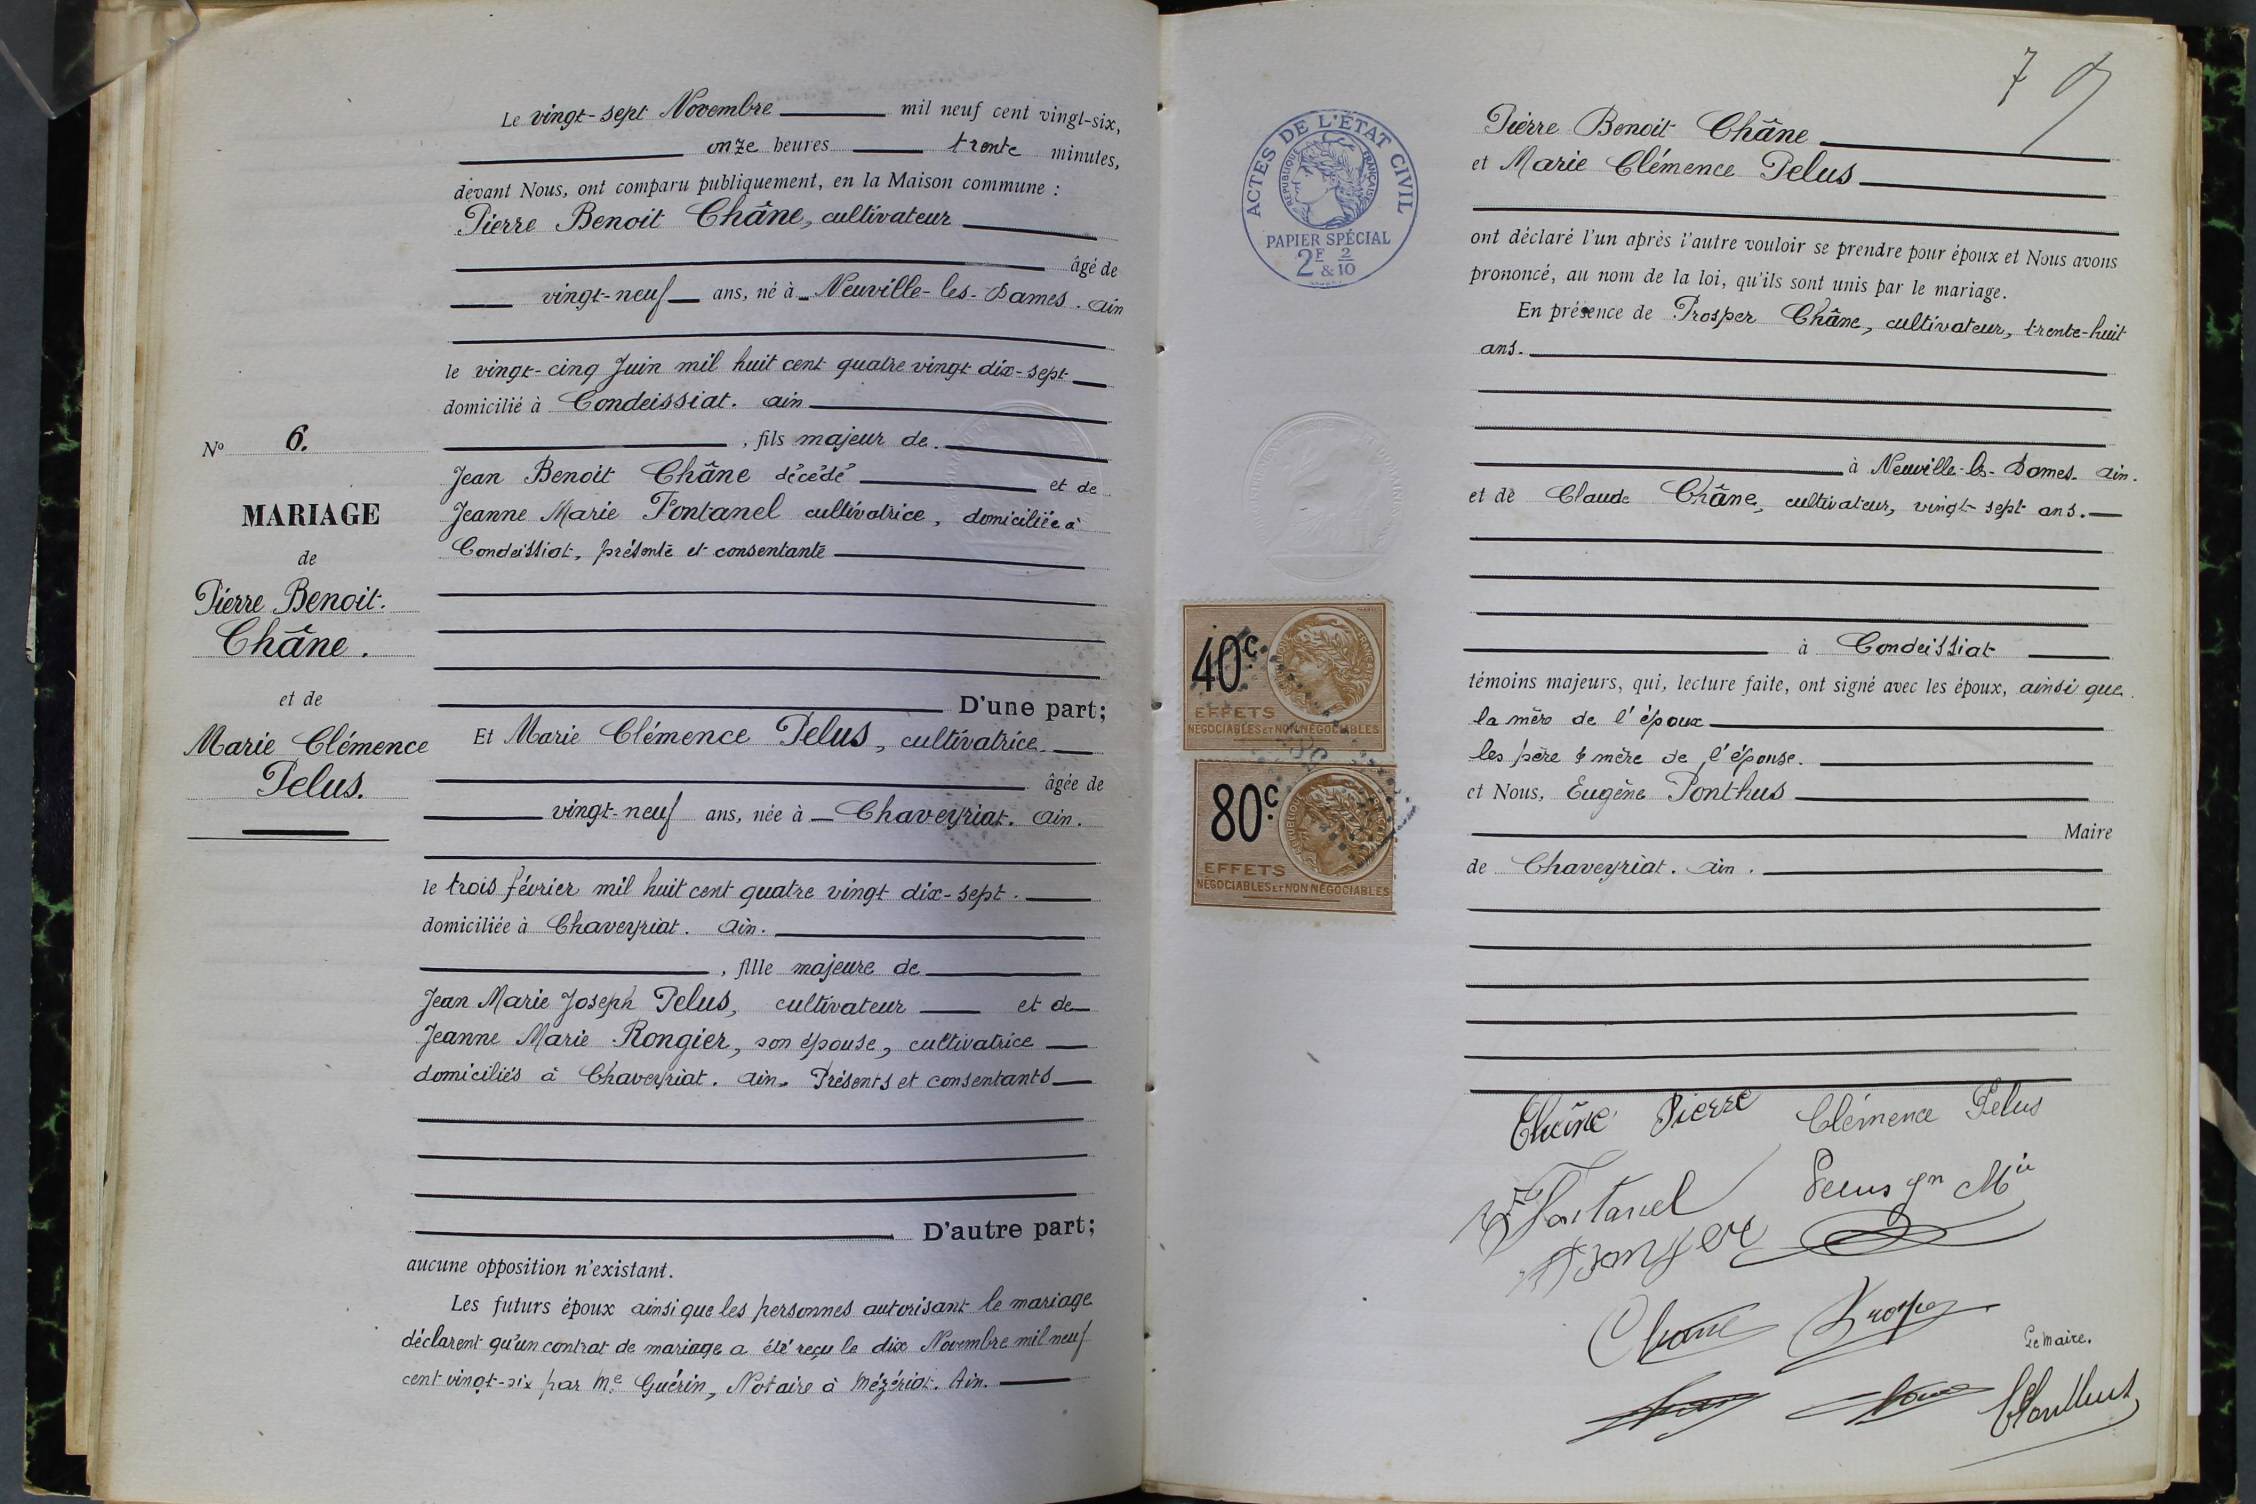 Le vingt-sept Novembre mil neuf cent vingt-six,
onze heures trente minutes,
devant Nous, ont comparu publiquement, en la Maison commune :
Pierre Benoit Châne, cultivateur
âgé de
vingt-neuf ans, né à Neuville-les-Dames. Ain
le vingt-cinq Juin mil huit cent quatre vingt dix-sept
domicilié à Condeissiat. Ain
, fils majeur de
Jean Benoit Châne décédé et de
Jeanne Marie Fontanel cultivatrice, domiciliée à
Condeissiat, présente et consentante
D'une part;
Et Marie Clémence Pelus, cultivatrice
âgée de
vingt-neuf ans, née à Chaveyriat. Ain.
le trois février mil huit cent quatre vingt dix-sept.
domiciliée à Chaveyriat. Ain.
, fille majeure de
Jean Marie Joseph Pelus, cultivateur et de
Jeanne Marie Rongier, son épouse, cultivatrice
domiciliés à Chaveyriat. Ain. Présents et consentants
D'autre part;
aucune opposition n'existant.
Les futurs époux ainsi que les personnes autorisant le mariage
déclarent qu'un contrat de mariage a été reçu le dix Novembre mil neuf
cent vingt-six par Me Guérin, Notaire à Mézériat. Ain.
No 6.
MARIAGE
de
Pierre Benoit.
Châne.
et de
Marie Clémence
Pelus.
7
ACTES DE L'ÉTAT CIVIL
RÉPUBLIQUE FRANÇAISE
PAPIER SPÉCIAL
2F & 2/10
40c.
EFFETS
NÉGOCIABLES ET NON NÉGOCIABLES
80c.
EFFETS
NÉGOCIABLES ET NON NÉGOCIABLES
Pierre Benoit Châne
et Marie Clémence Pelus
ont déclaré l'un après l'autre vouloir se prendre pour époux et Nous avons
prononcé, au nom de la loi, qu'ils sont unis par le mariage.
En présence de Prosper Châne, cultivateur, trente-huit
ans.
à Neuville-les-Dames. Ain.
et de Claude Châne, cultivateur, vingt-sept ans.
à Condeissiat
témoins majeurs, qui, lecture faite, ont signé avec les époux, ainsi que
la mère de l'époux
les père & mère de l'épouse.
et Nous, Eugène Ponthus
Maire
de Chaveyriat. Ain.
Châne Pierre Clémence Pelus
Fontanel Pelus Jn Mie
Chane Prosper
Le Maire.
Ponthus